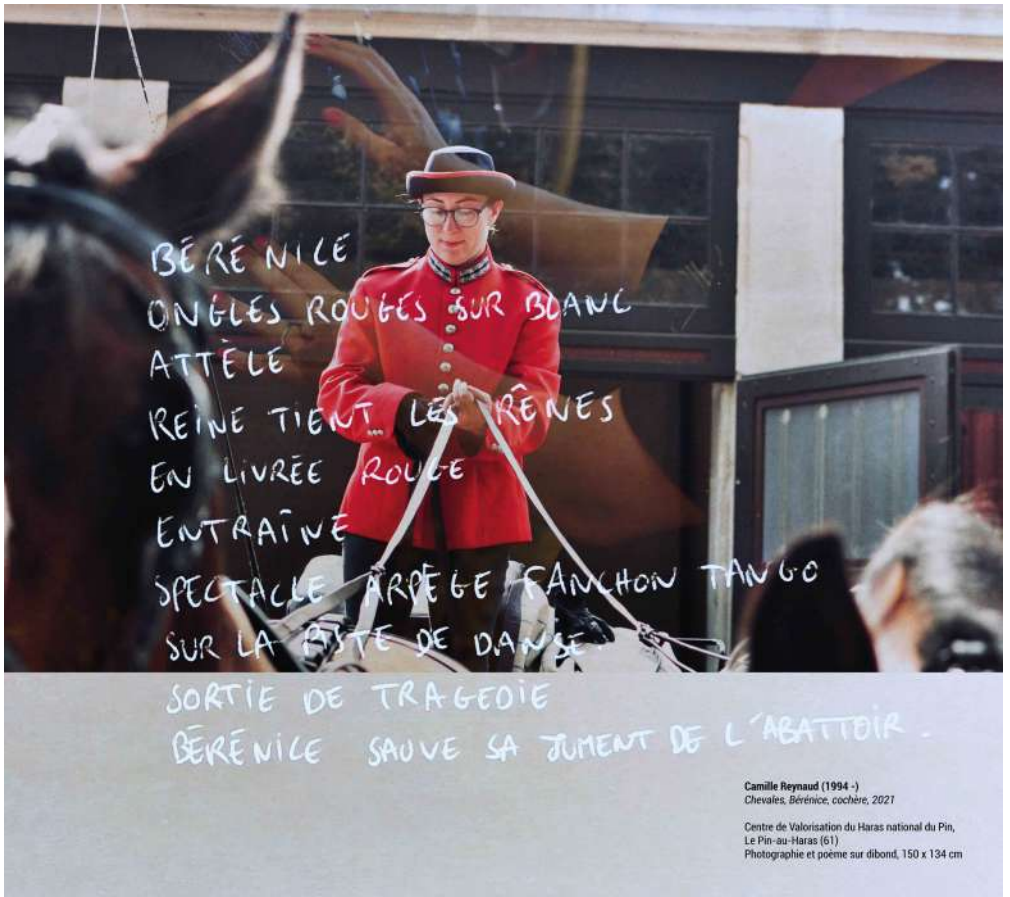 BÉRÉNICE
ONGLES ROUGES SUR BLANC
ATTÈLE
REINE TIENT LES RÊNES
EN LIVRÉE ROUGE
ENTRAÎNE
SPECTACLE ARPÈGE FANCHON TANGO
SUR LA PISTE DE DANSE.
SORTIE DE TRAGEDIE
BÉRÉNICE SAUVE SA JUMENT DE L'ABATTOIR.
Camille Reynaud (1994 -)
Chevales, Bérénice, cochère, 2021
Centre de Valorisation du Haras national du Pin,
Le Pin-au-Haras (61)
Photographie et poème sur dibond, 150 x 134 cm